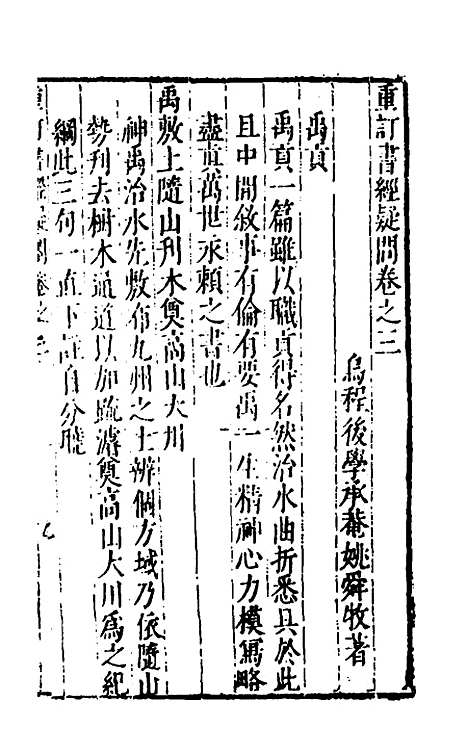 重訂書經疑問卷之三
烏程後學承菴姚舜牧著
禹貢
禹貢一篇雖以職貢得名然治水曲折悉具於此
且中間敘事有倫有要禹一生精神心力模寫略
盡真萬世永賴之書也
禹敷土隨山刋木奠高山大川
神禹治水先敷布九州之土辨個方域乃依隨山
勢刋去樹木通道以加疏濬奠高山大川爲之紀
綱此三句一直下註自分曉
重訂書經疑問卷之三